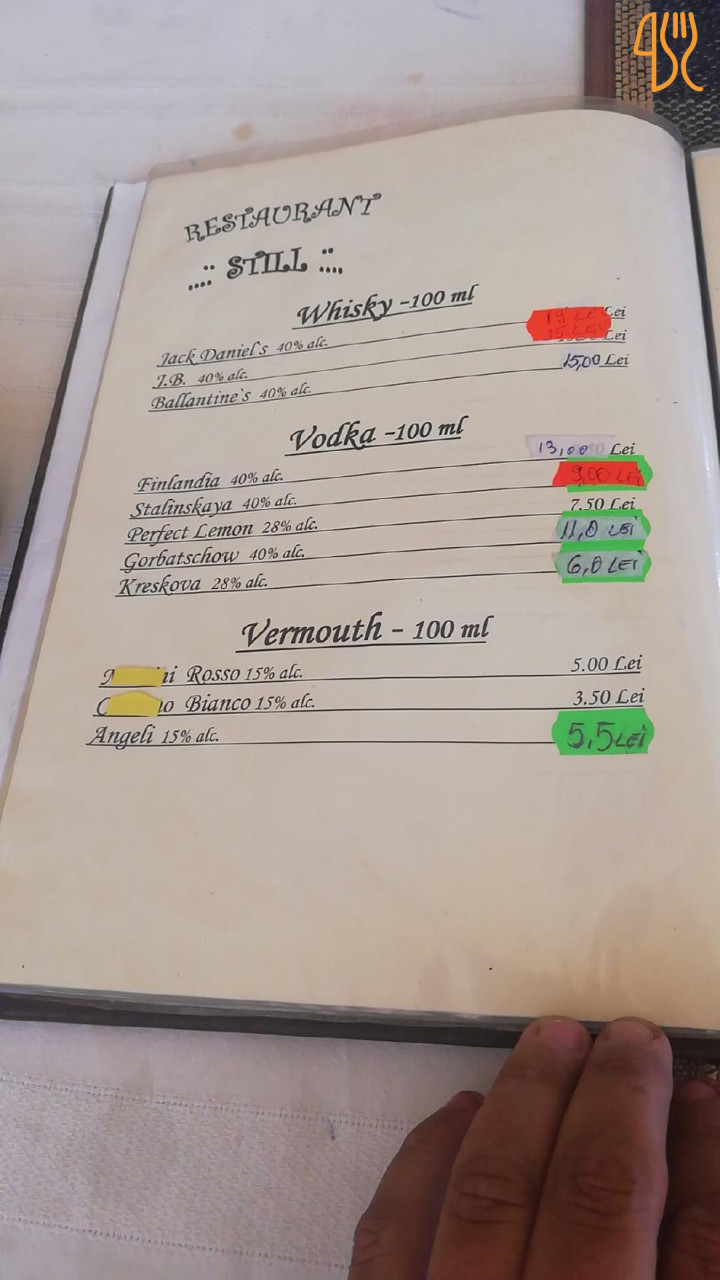 RESTAURANT
STILL
Whisky -100 ml
Jack Daniel's 40% alc. Lei
J.B. 40% alc. 15 LEI Lei
Ballantine`s 40% alc. 15,00 Lei
Vodka -100 ml
Finlandia 40% alc. 13,00 Lei
Stalinskaya 40% alc. 9,00 LEI
Perfect Lemon 28% alc. 7.50 Lei
Gorbatschow 40% alc. 11,0 LEI
Kreskova 28% alc. 6,0 LEI
Vermouth - 100 ml
Rosso 15% alc. 5.00 Lei
Bianco 15% alc. 3.50 Lei
Angeli 15% alc. 5,5 LEI